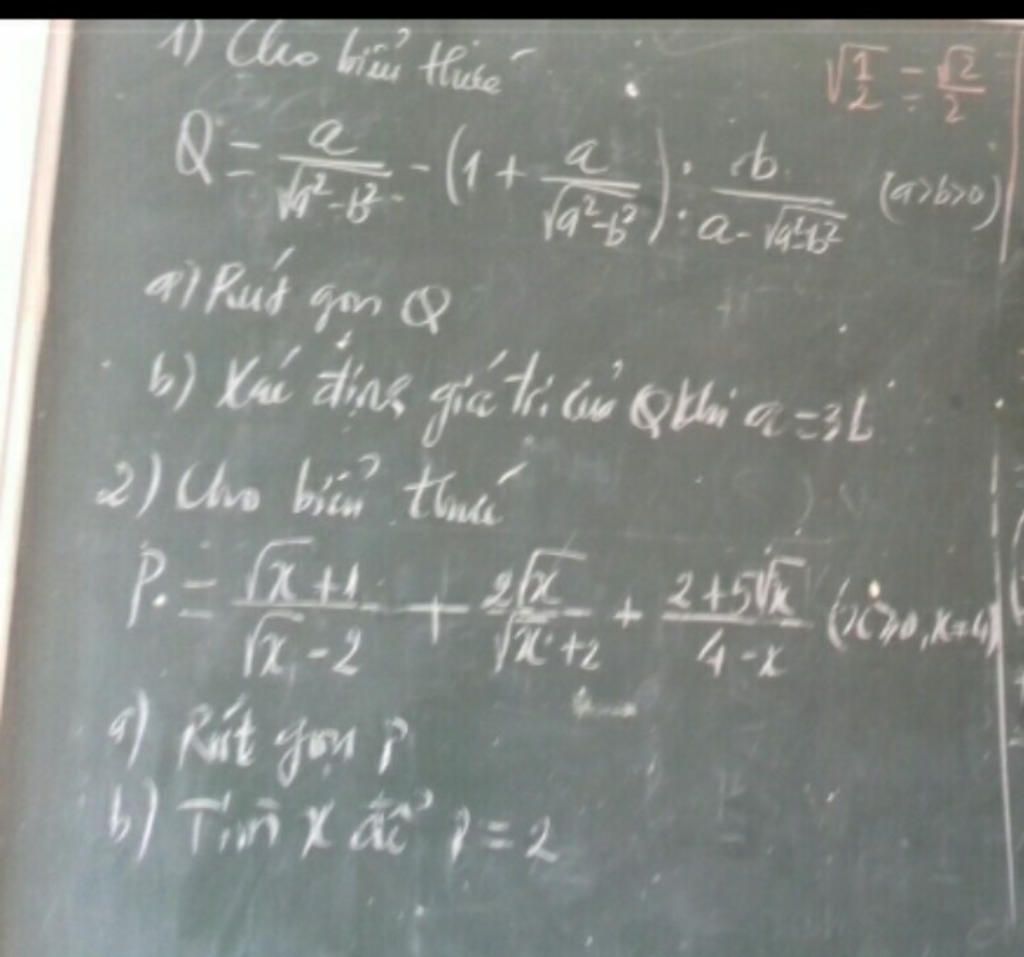 1) Cho biểu thức
√1/2 = √2/2
Q = a/√(a²-b²) - (1 + a/√(a²-b²)) : b/(a-√(a²-b²)) (a>b>0)
a) Rút gọn Q
b) Xác định giá trị của Q khi a=3b
2) Cho biểu thức
P = (√x+1)/(√x-2) + 2√x/(√x+2) + (2+5√x)/(4-x) (x≥0, x≠4)
a) Rút gọn P
b) Tìm x để P=2